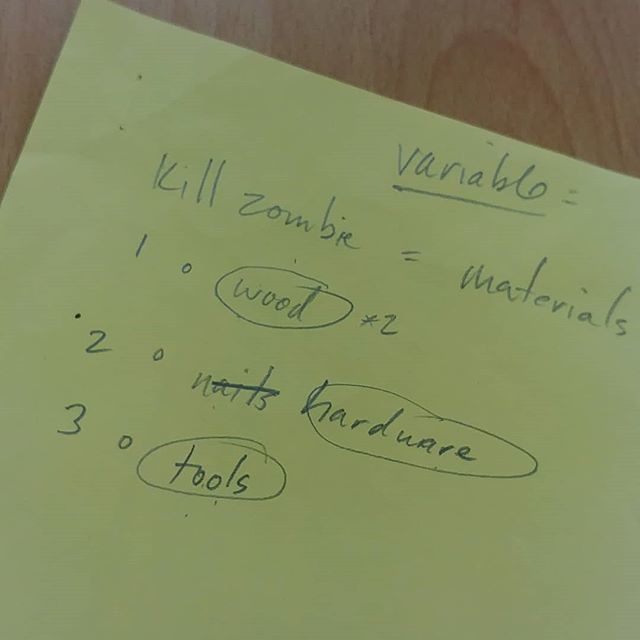 variable =
Kill zombie = materials
1 o wood *2
2 o nails hardware
3 o tools